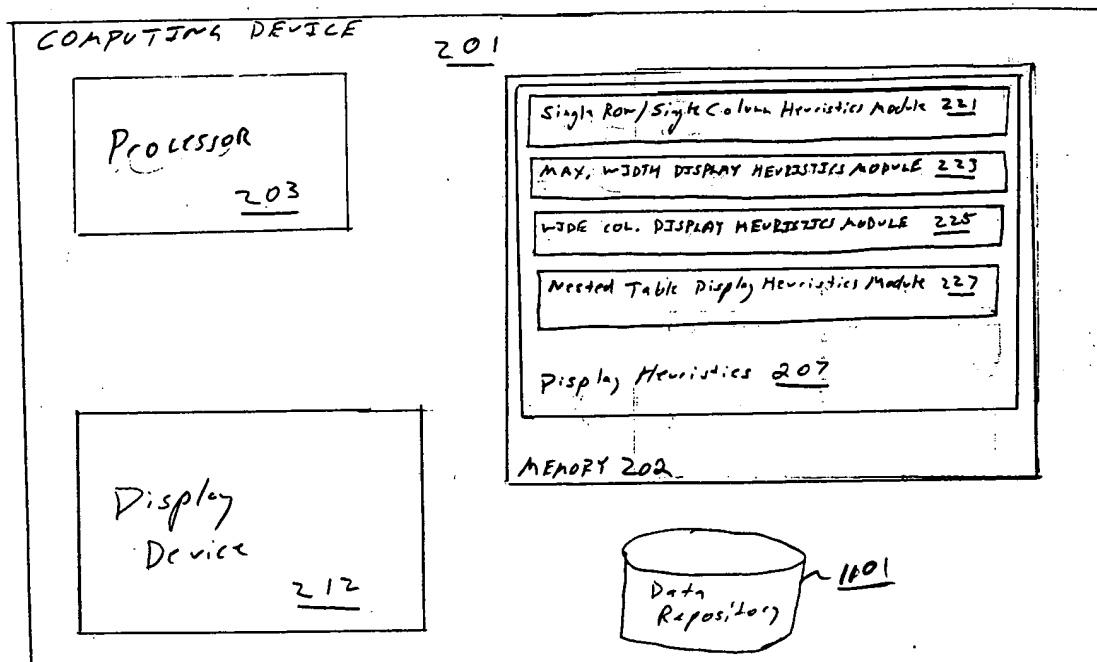 COMPUTING DEVICE
201
Processor
203
Single Row/Single Column Heuristics Module 221
MAX. WIDTH DISPLAY HEURISTICS MODULE 223
WIDE COL. DISPLAY HEURISTICS MODULE 225
Nested Table Display Heuristics Module 227
Display Heuristics 207
MEMORY 202
Display
Device
212
Data
Repository
1101